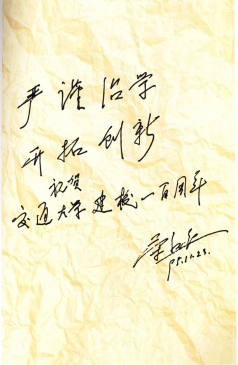 严谨治学
开拓创新
祝贺
交通大学建校一百周年
95.11.23.